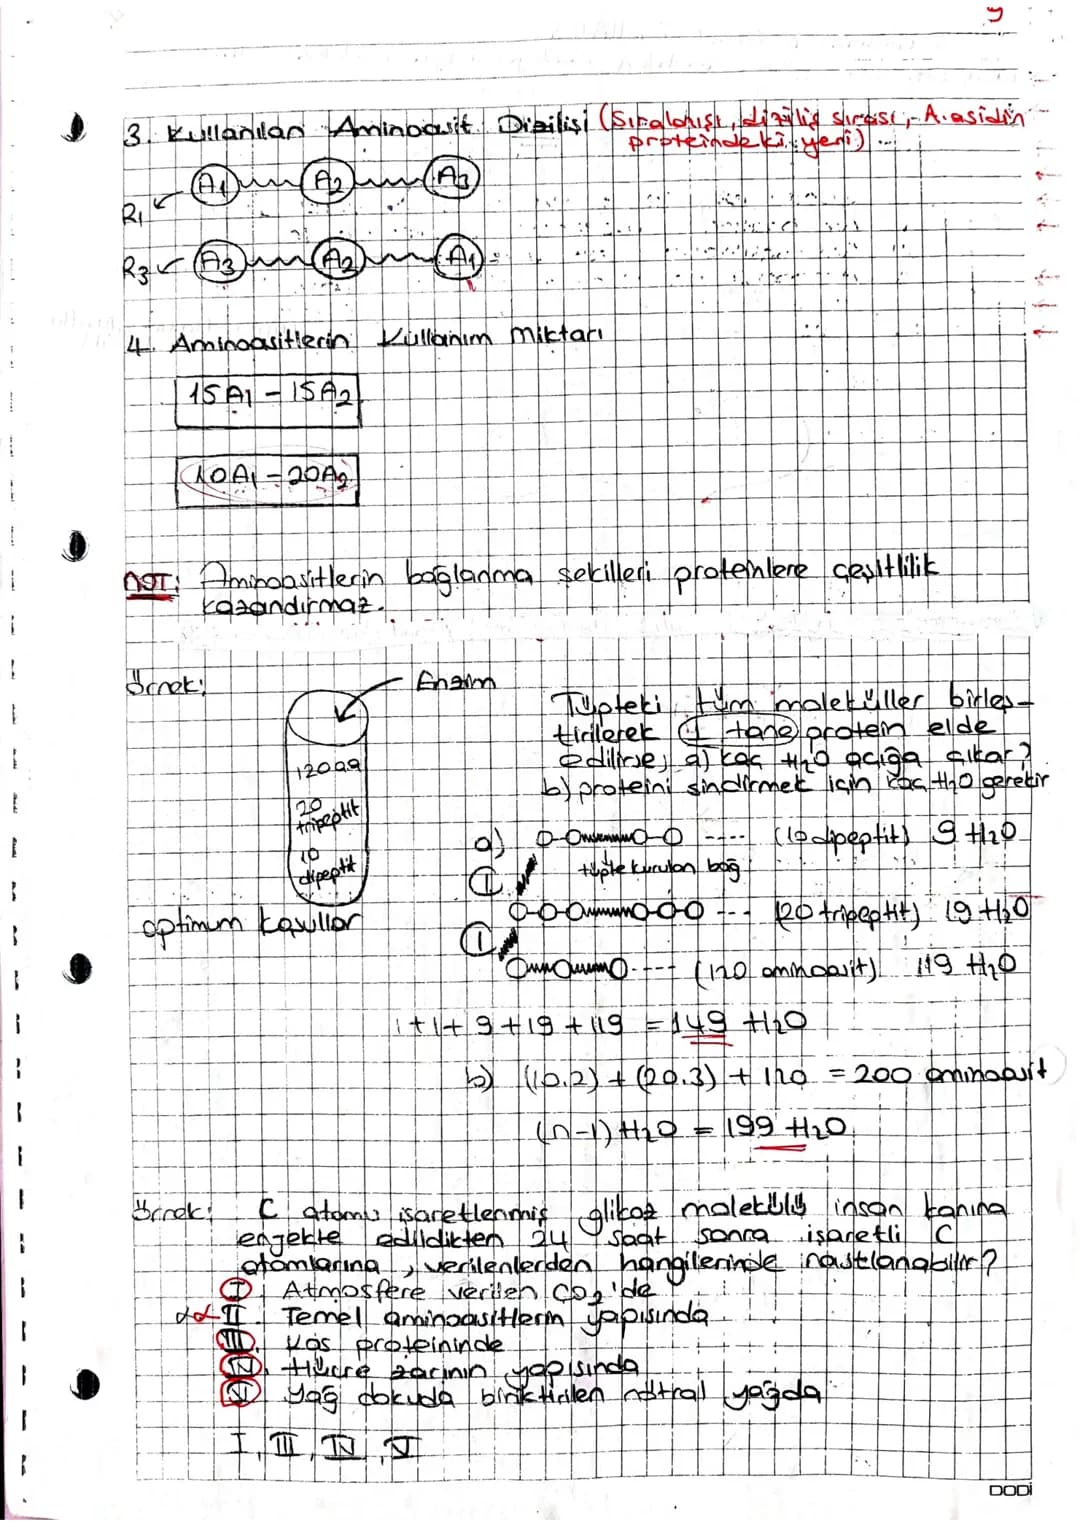 y
3. Kullanılan Aminoasit Dizilişi (Sıralanışı, diziliş sırası, A.asidin
proteindeki yeri)
R1 A1 A2 A3
R3 A3 A2 A1
4. Aminoasitlerin Kullanım Miktarı
15A1 - 15A2
10A1 - 20A2
NOT: Aminoasitlerin bağlanma şekilleri proteinlere çeşitlilik
kazandırmaz.
Örnek:
Enzim
120aa
20
tripeptit
10
dipeptit
optimum koşullar
Tüpteki tüm moleküller birleş-
tirilerek 1 tane protein elde
edilirse, a) kaç H2O açığa çıkar?
b) proteini sindirmek için kaç H2O gerekir
a) O-O O-O ---- (10 dipeptit) 9 H2O
1 tüpte kurulan bağ
O-O-O O-O-O --- (20 tripeptit) 19 H2O
1
O O O ---- (120 aminoasit) 119 H2O
1+1+9+19+119 = 149 H2O
b) (10.2) + (20.3) + 120 = 200 aminoasit
(n-1) H2O = 199 H2O
Örnek: C atomu işaretlenmiş glikoz molekülü insan kanına
enjekte edildikten 24 saat sonra işaretli C
atomlarına, verilenlerden hangilerinde rastlanabilir?
I Atmosfere verilen CO2'de
II. Temel aminoasitlerin yapısında
III. Kas proteininde
IV. Hücre zarının yapısında
V. Yağ dokuda biriktirilen nötral yağda
I, III, IV, V
DODİ